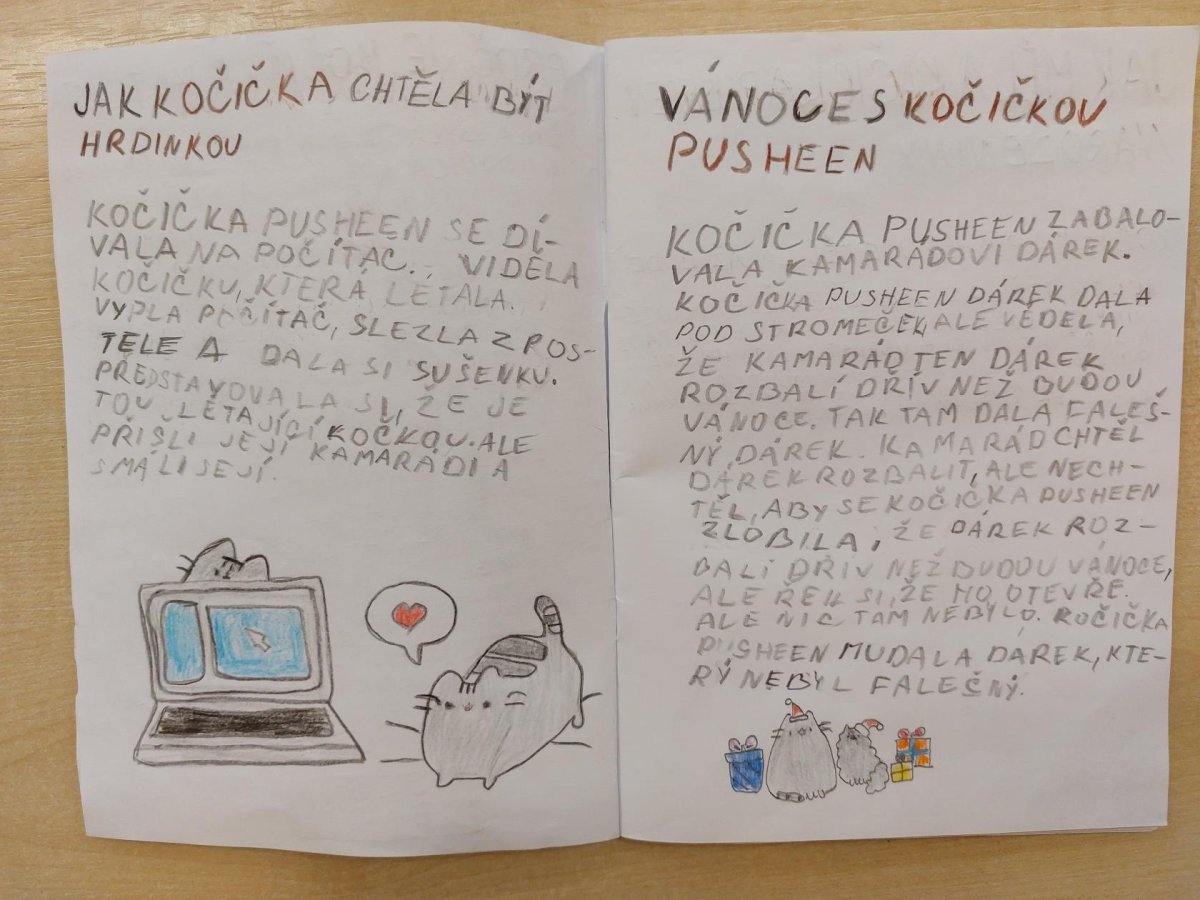 JAK KOČIČKA CHTĚLA BÝT
HRDINKOU
KOČIČKA PUSHEEN SE DÍ-
VALA NA POČÍTAČ. VIDĚLA
KOČIČKU, KTERÁ LÉTALA.
VYPLA POČÍTAČ, SLEZLA Z POS-
TELE A DALA SI SUŠENKU.
PŘEDSTAVOVALA SI, ŽE JE
TOU LÉTAJÍCÍ KOČKOU. ALE
PŘIŠLI JEJÍ KAMARÁDI A
SMÁLI SE JÍ.
VÁNOCE S KOČIČKOU
PUSHEEN
KOČIČKA PUSHEEN ZABALO-
VALA KAMARÁDOVI DÁREK.
KOČIČKA PUSHEEN DÁREK DALA
POD STROMEČEK, ALE VĚDĚLA,
ŽE KAMARÁD TEN DÁREK
ROZBALÍ DŘÍV NEŽ BUDOU
VÁNOCE. TAK TAM DALA FALEŠ-
NÝ DÁREK. KAMARÁD CHTĚL
DÁREK ROZBALIT, ALE NECH-
TĚL, ABY SE KOČIČKA PUSHEEN
ZLOBILA, ŽE DÁREK ROZ-
BALÍ DŘÍV NEŽ BUDOU VÁNOCE,
ALE ŘEKL SI, ŽE HO OTEVŘE.
ALE NIC TAM NEBYLO. KOČIČKA
PUSHEEN MU DALA DÁREK, KTE-
RÝ NEBYL FALEŠNÝ.